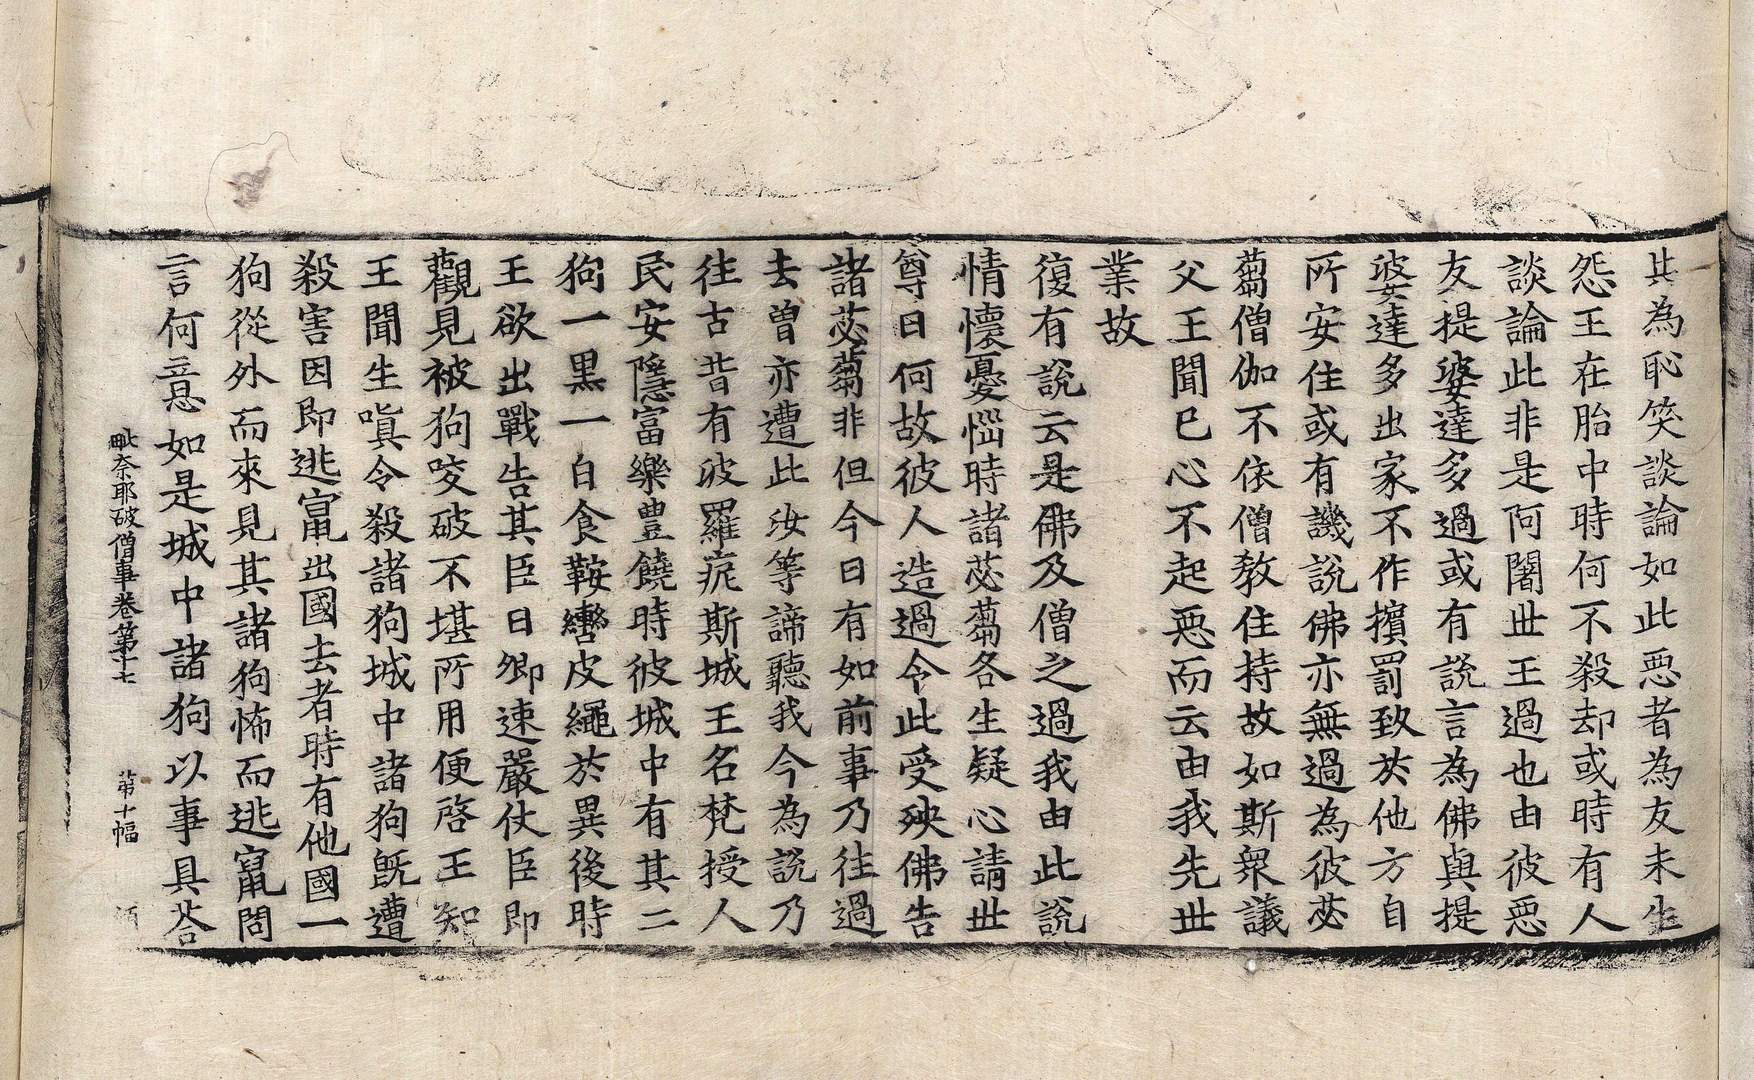 其為恥笑談論如此惡者為友未生
怨王在胎中時何不殺却或時有人
談論此非是阿闍世王過也由彼惡
友提婆達多過或有說言為佛與提
婆達多出家不作擯罰致於他方自
所安住或有譏說佛亦無過為彼苾
蒭僧伽不依僧教住持故如斯眾議
父王聞已心不起惡而云由我先世
業故
復有說云是佛及僧之過我由此說
情懷憂惱時諸苾蒭各生疑心請世
尊曰何故彼人造過令此受殃佛告
諸苾蒭非但今日有如前事乃往過
去曾亦遭此汝等諦聽我今為說乃
往古昔有波羅痆斯城王名梵授人
民安隱富樂豊饒時彼城中有其二
狗一黑一白食鞍轡皮繩於異後時
王欲出戰告其臣曰卿速嚴仗臣即
觀見被狗咬破不堪所用便啓王知
王聞生嗔令殺諸狗城中諸狗旣遭
殺害因即逃竄出國去者時有他國一
狗從外而來見其諸狗怖而逃竄問
言何意如是城中諸狗以事具荅
毗奈耶破僧事卷第十七 第十幅